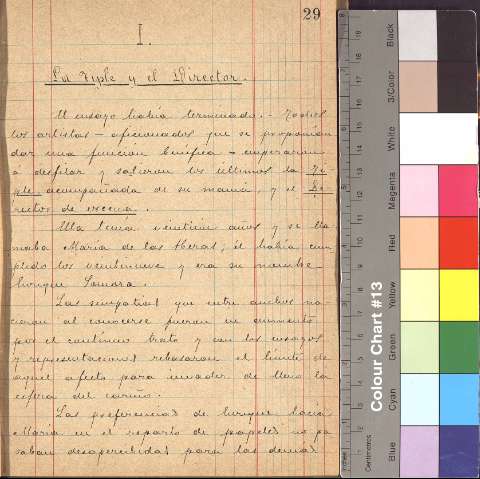 29
I.
La Tiple y el Director.
El ensayo había terminado. - Todos
los artistas - aficionados que se proponían
dar una función benéfica - empezaron
a desfilar y salieron los últimos la Ti-
ple acompañada de su mamá, y el Di-
rector de escena.
Ella tenía veintiún años y se lla-
maba María de las Heras; él había cum-
plido los veintinueve y era su nombre
Enrique Lomara.
Las simpatías que entre ambos na-
cieran al conocerse fueron en aumento
por el continuo trato y con los ensayos
y representaciones rebasaron el límite de
aquel afecto para invadir de lleno la
esfera del cariño.
Las preferencias de Enrique hacia
María en el reparto de papeles no pa-
saban desapercibidas para las demás
Colour Chart #13
Black
3/Color
White
Magenta
Red
Yellow
Green
Cyan
Blue
Centimetres
Inches